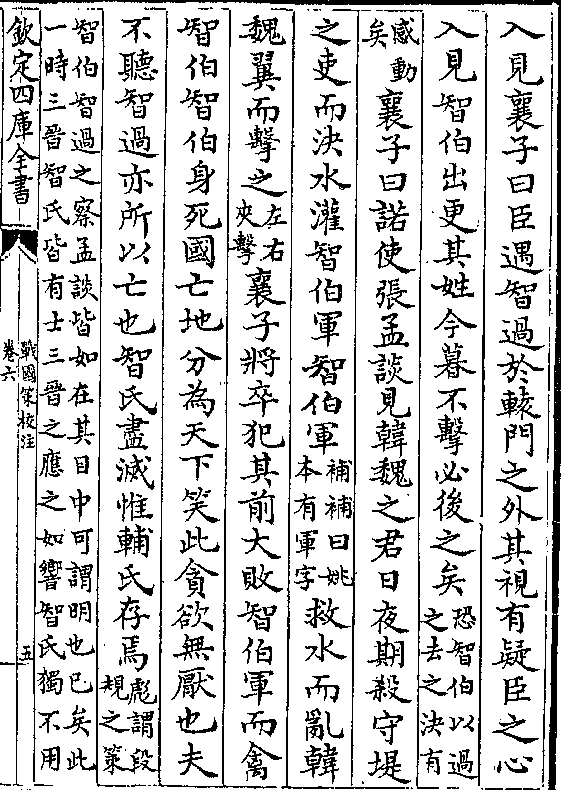 入見襄子曰臣遇智過於轅門之外其視有疑臣之心
入見智伯出更其姓今暮不擊必後之矣恐智伯以過之去之決有
感動矣襄子曰諾使張孟談見韓魏之君曰夜期殺守堤
之吏而決水灌智伯軍智伯軍補補曰姚本有軍字救水而亂韓
魏翼而擊之左右夾擊襄子將卒犯其前大敗智伯軍而禽
智伯智伯身死國亡地分為天下笑此貪欲無厭也夫
不聽智過亦所以亡也智氏盡滅惟輔氏存焉彪謂段規之策
智伯智過之察孟談皆如在其目中可謂明也已矣此
一時三晉智氏皆有士三晉之應之如響智氏獨不用
欽定四庫全書
戰國策校注
卷六
五